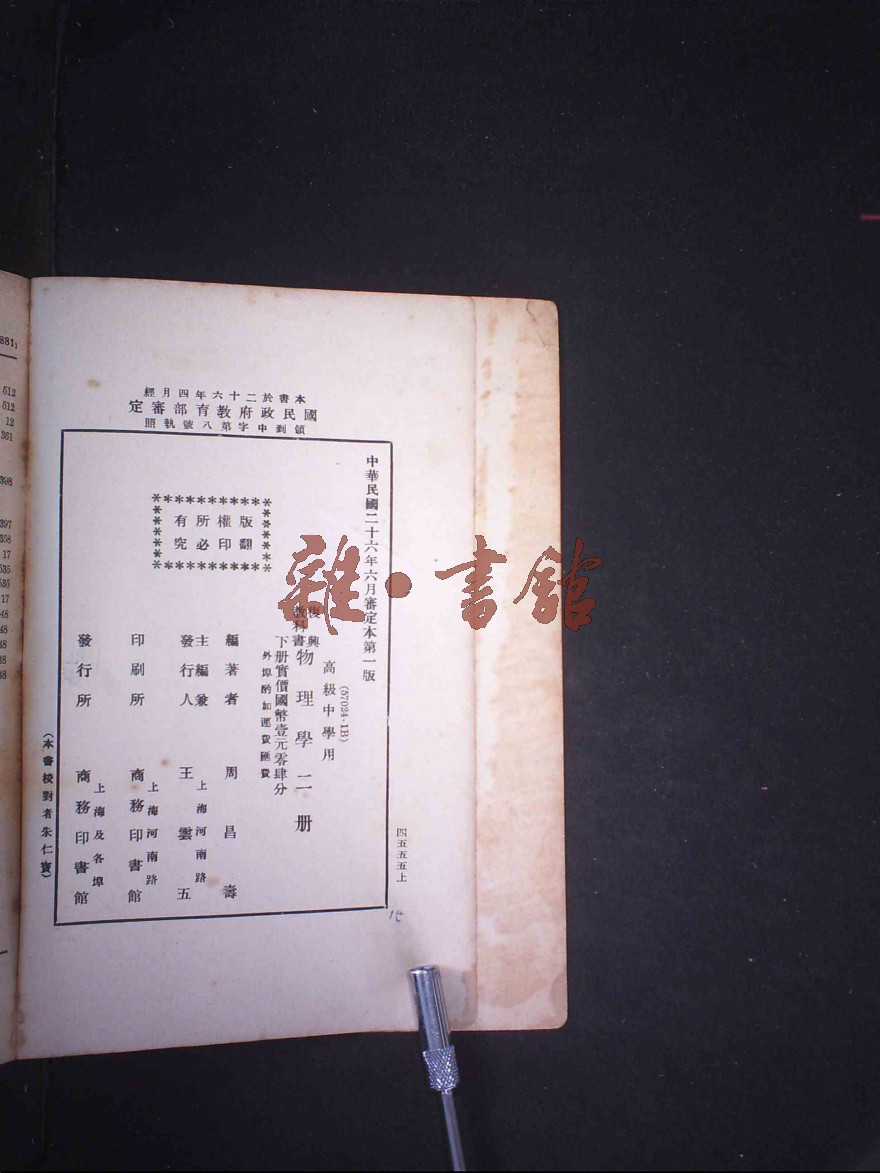 本書於二十六年四月經
國民政府教育部審定
領到中字第八號執照
中華民國二十六年六月審定本第一版
版權所有
翻印必究
(57024·1B)
高級中學用
復興
教科書
物理學二册
下册實價國幣壹元零肆分
外埠酌加運費匯費
編著者 周昌壽
主編兼
發行人 王雲五
上海河南路
印刷所 商務印書館
上海河南路
發行所 商務印書館
上海及各埠
(本書校對者朱仁寶)
四五五五上
雜·書館
881;
512
512
12
361
398
397
358
17
535
535
17
48
48
48
48
48